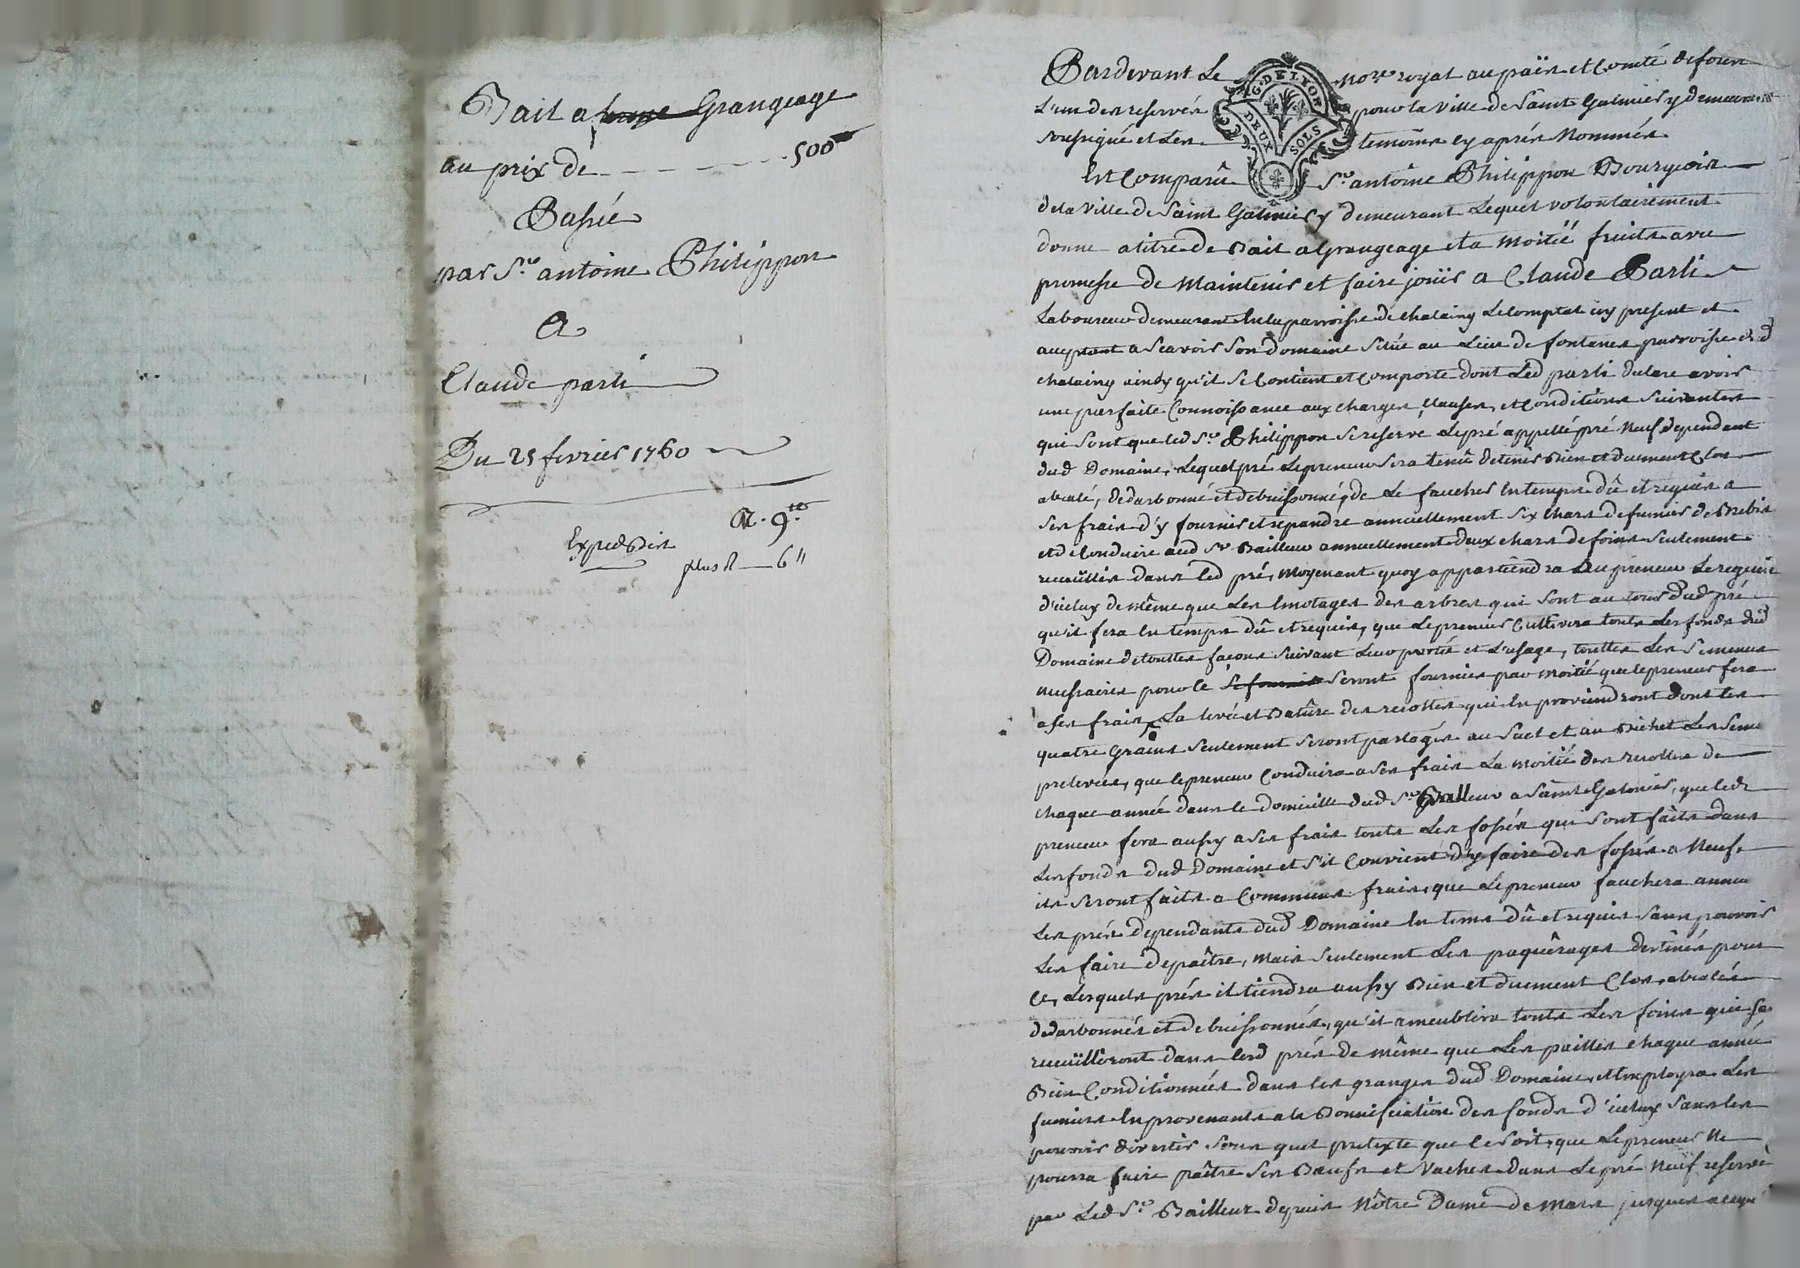 Bail a ferme Grangeage
au prix de 500ᵗᵗ
Passée
par Sr antoine Philippon
A
Claude parli
Du 25 fevrier 1760
R. 9ᵗᵗ
Expedier
plus 6ᶥᶥ
Pardevant Le Nore royal au païs et Comté de forez
L'un des reservés pour la Ville de Saint Galmier y demeurant
soussigné et Les temoins cy aprés Nommés
G. DE LYON
DEUX SOLS
Est Comparû Sr antoine Philippon Bourgeois
de la Ville de Saint Galmier y demeurant Lequel volontairement
donne a titre de Bail a Grangeage et a Moitié fruits avec
promesse de Maintenir et faire joüir a Claude Parli
Laboureur demeurant En la parroisse de chalaing Le Comptal icy present et
acceptant a scavoir Son Domaine Situé au Lieu de fontanes parroisse dud
chalaing ainsy qu'il Se Contient et Comporte dont Led parli declare avoir
une parfaite Connoissance aux charges Clauses, et Conditions Suivantes
qui Sont que led Sr Philippon Se reserve Le pré appellé pré Neuf dependant
dud Domaine, Lequel pré Le preneur Sera tenû de tenir Bien et duement Clos
abialé, dedarbonné et debuissonné, de Le faucher En temps dû et requis a
Ses frais d'y fournir et repandre annuellement Six chars de fumier de Brebis
et de Conduire aud Sr Bailleur annuellement deux chars de foins Seulement
recuüillis dans led pré, Moyenant quoy appartiendra au preneur Le
d'iceluy de même que Les Emotages des arbres qui Sont au tour dud pré
qu'il fera En temps dû et requis, que Le preneur Cultivera touts Les fonds dud
Domaine de touttes façons Suivant Leur portée et L'usage, touttes Les Semences
necessaires pour le Seront fournies par moitié que le preneur fera
a ses frais La levée et Batûre des recoltes qui En proviendront dont Les
quatre Grains Seulement Seront partagés au Sael et au Bichet Les Seme
prelevées, que le preneur Conduira a Ses frais La moitié des recoltes de
chaque année dans le domicille dud Sr Bailleur a Saint Galmier, que led
preneur fera aussy a Ses frais touts Les fossés qui Sont faits dans
Les fonds dud Domaine et S'il Convient d'y faire des fossés a Neuf
ils Seront faits a Communs frais, que Le preneur fauchera
Les prés dependants dud Domaine En tems dû et requis Sans pouvoir
Les faire depaître, mais Seulement Les paquêrages destinés pour
Ce, Lesquels prés il tiendra aussy Bien et duement Clos, abialés
dedarbonnés et debuissonnés, qu'il ameublira touts Les foins qui Se
recuüilleront dans lesd prés de même que Les pailles chaque année
Bien Conditionnées dans les granges dud Domaine, et Employra Les
fumiers En provenants a la Bonnifiation des fonds d'iceluy Sans Les
pouvoir divertir Sous quel pretexte que Ce Soit, que Le preneur Ne
pourra faire paître Ses Bœufs et Vaches dans Le pré Neuf reservé
par Led Sr Bailleur depuis Nôtre Dame de Mars jusques a